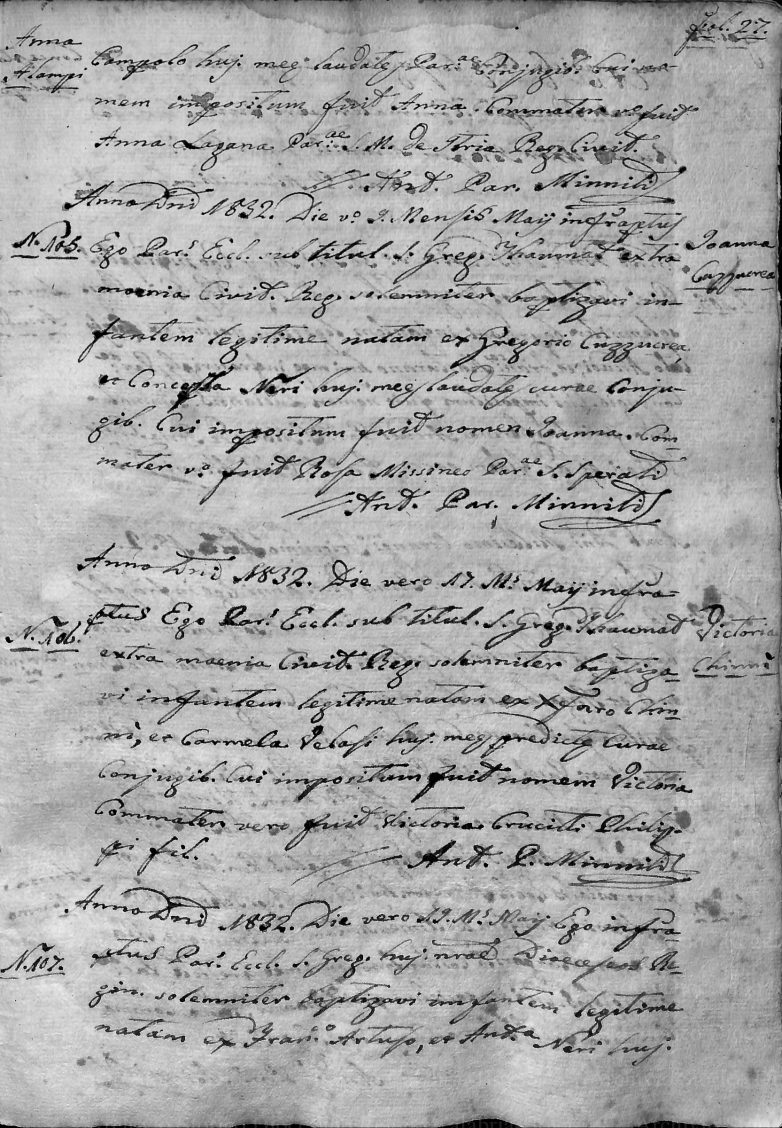 fol. 27.
Anna
Alampi
Campolo huj. meę laudatę Par.ae Conjugib. Cui no-
men impositum fuit Anna. Commater v.o fuit
Anna Lagana Par.ae S. M. de Itria Reg. Civit.
Ant. Par. Minniti
Anno Dni 1832. Die v.o 9. Mensis Maij infraptus
N. 105.
Joanna
Cuzzucrea
Ego Par.s Eccl. sub titul. S. Greg. Thaumat extra
moenia Civit. Reg. solemniter baptizavi in-
fantem legitime natam ex Gregorio Cuzzucrea,
et Concepta Neri huj. meę laudatę curae Conju-
gib. Cui impositum fuit nomen Joanna. Com-
mater v.o fuit Rosa Missineo Par.ae S. Sperati
Ant. Par. Minniti
Anno Dni 1832. Die vero 17. M.s Maij infra-
N. 106.
Victoria
Chinnì
ptus Ego Par.s Eccl. sub titul. S. Greg. Thaumat
extra moenia Civit. Reg. solemniter baptiza-
vi infantem legitime natam ex Xforo Chin-
nì, et Carmela Velasi huj. meę predictę Curae
Conjugib. Cui impositum fuit nomem Victoria
Commater vero fuit Victoria Cruciti Philip-
pi fil.
Ant. P. Minniti
Anno Dni 1832. Die vero M.s Maij Ego infra-
N. 107.
ptus Par.s Eccl. S. Greg. huj. nrae Dioeceseos Re-
gin. solemniter baptizavi infantem legitime
natam ex Fran.o Artuso, et Ant.a Neri huj.